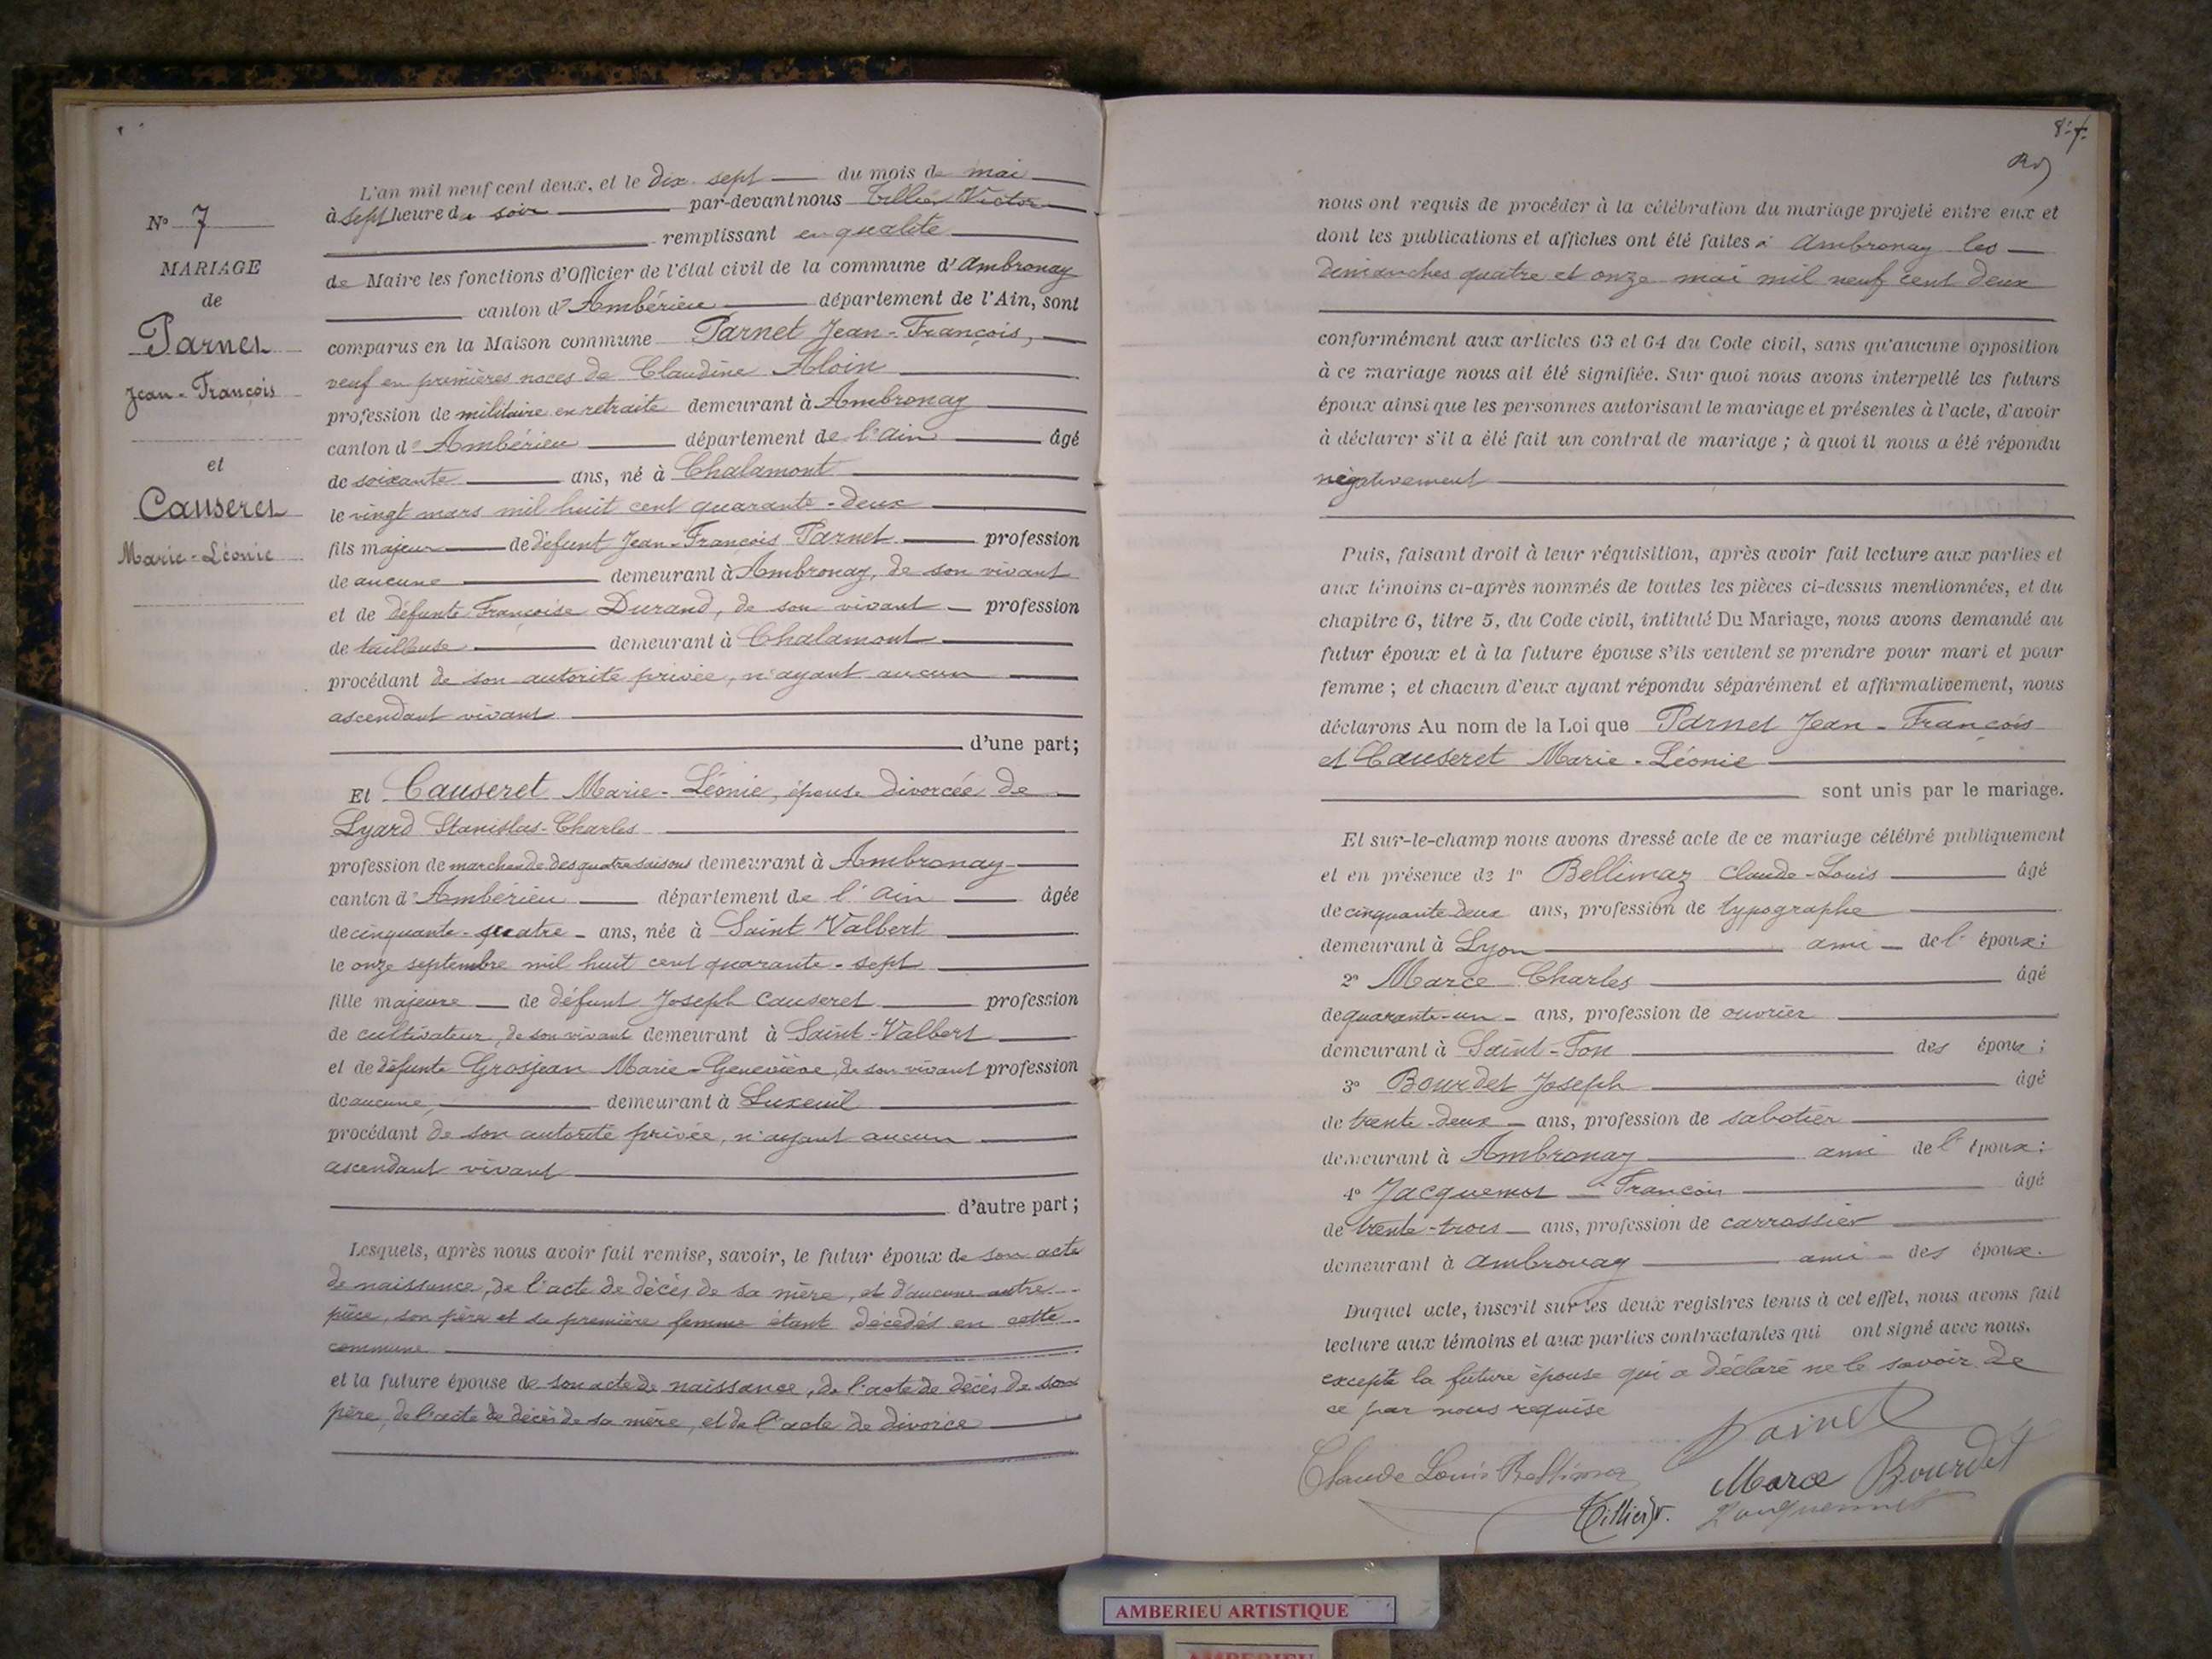 N° 7
MARIAGE
de
Parnet
Jean-François
et
Causeret
Marie-Léonie
L'an mil neuf cent deux, et le dix sept du mois de mai
à sept heure du soir par-devant nous Tillier Victor
remplissant en qualité
de Maire les fonctions d'Officier de l'état civil de la commune d'Ambronay
canton d'Ambérieu département de l'Ain, sont
comparus en la Maison commune Parnet Jean-François,
veuf en premières noces de Claudine Aloin
profession de militaire en retraite demeurant à Ambronay
canton d'Ambérieu département de l'ain âgé
de soixante ans, né à Chalamont
le vingt mars mil huit cent quarante-deux
fils majeur de défunt Jean-François Parnet profession
de aucune demeurant à Ambronay, de son vivant
et de défunte Françoise Durand, de son vivant profession
de tailleuse demeurant à Chalamont
procédant de son autorité privée, n'ayant aucun
ascendant vivant
d'une part;
Et Causeret Marie-Léonie, épouse divorcée de
Lyard Stanislas-Charles
profession de marchande des quatre saisons demeurant à Ambronay
canton d'Ambérieu département de l'ain âgée
de cinquante-quatre ans, née à Saint Valbert
le onze septembre mil huit cent quarante-sept
fille majeure de défunt Joseph Causeret profession
de cultivateur, de son vivant demeurant à Saint-Valbert
et de défunte Grosjean Marie-Geneviève, de son vivant profession
de aucune, demeurant à Luxeuil
procédant de son autorité privée, n'ayant aucun
ascendant vivant
d'autre part;
Lesquels, après nous avoir fait remise, savoir, le futur époux de son acte
de naissance, de l'acte de décès de sa mère, et d'aucune autre
pièce, son père et sa première femme étant décédés en cette
commune
et la future épouse de son acte de naissance, de l'acte de décès de son
père, de l'acte de décès de sa mère, et de l'acte de divorce
nous ont requis de procéder à la célébration du mariage projeté entre eux et
dont les publications et affiches ont été faites à Ambronay les
dimanches quatre et onze mai mil neuf cent deux
conformément aux articles 63 et 64 du Code civil, sans qu'aucune opposition
à ce mariage nous ait été signifiée. Sur quoi nous avons interpellé les futurs
époux ainsi que les personnes autorisant le mariage et présentes à l'acte, d'avoir
à déclarer s'il a été fait un contrat de mariage; à quoi il nous a été répondu
négativement
Puis, faisant droit à leur réquisition, après avoir fait lecture aux parties et
aux témoins ci-après nommés de toutes les pièces ci-dessus mentionnées, et du
chapitre 6, titre 5, du Code civil, intitulé Du Mariage, nous avons demandé au
futur époux et à la future épouse s'ils veulent se prendre pour mari et pour
femme; et chacun d'eux ayant répondu séparément et affirmativement, nous
déclarons Au nom de la Loi que Parnet Jean-François
et Causeret Marie-Léonie
sont unis par le mariage.
Et sur-le-champ nous avons dressé acte de ce mariage célébré publiquement
et en présence de 1° Bellimaz Claude-Louis âgé
de cinquante deux ans, profession de typographe
demeurant à Lyon ami de l'époux;
2° Marce Charles âgé
de quarante-un ans, profession de ouvrier
demeurant à Saint-Fon des époux;
3° Bourdet Joseph âgé
de trente-deux ans, profession de sabotier
demeurant à Ambronay ami de l'époux;
4° Jacquemot François âgé
de trente-trois ans, profession de carrossier
demeurant à ambronay ami des époux.
Duquel acte, inscrit sur les deux registres tenus à cet effet, nous avons fait
lecture aux témoins et aux parties contractantes qui ont signé avec nous.
excepté la future épouse qui a déclaré ne le savoir de
ce par nous requise
Parnet
Claude Louis Bellimaz
Marce Bourdet
Tillier V. Jacquemot
AMBERIEU ARTISTIQUE
AMBERIEU